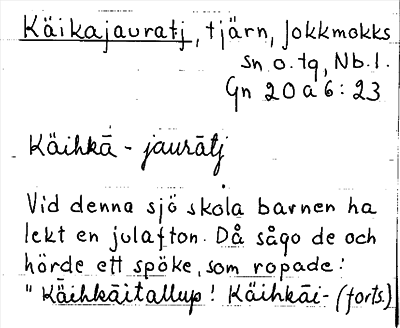 Käikajauratj, tjärn, Jokkmokks
sn. o. tg, Nb. l.
Gn 20 a 6:23
Käihkā - jaurātj
Vid denna sjö skola barnen ha
lekt en julafton. Då sågo de och
hörde ett spöke, som ropade:
"Käihkāitallup! Käihkāi- (forts.)